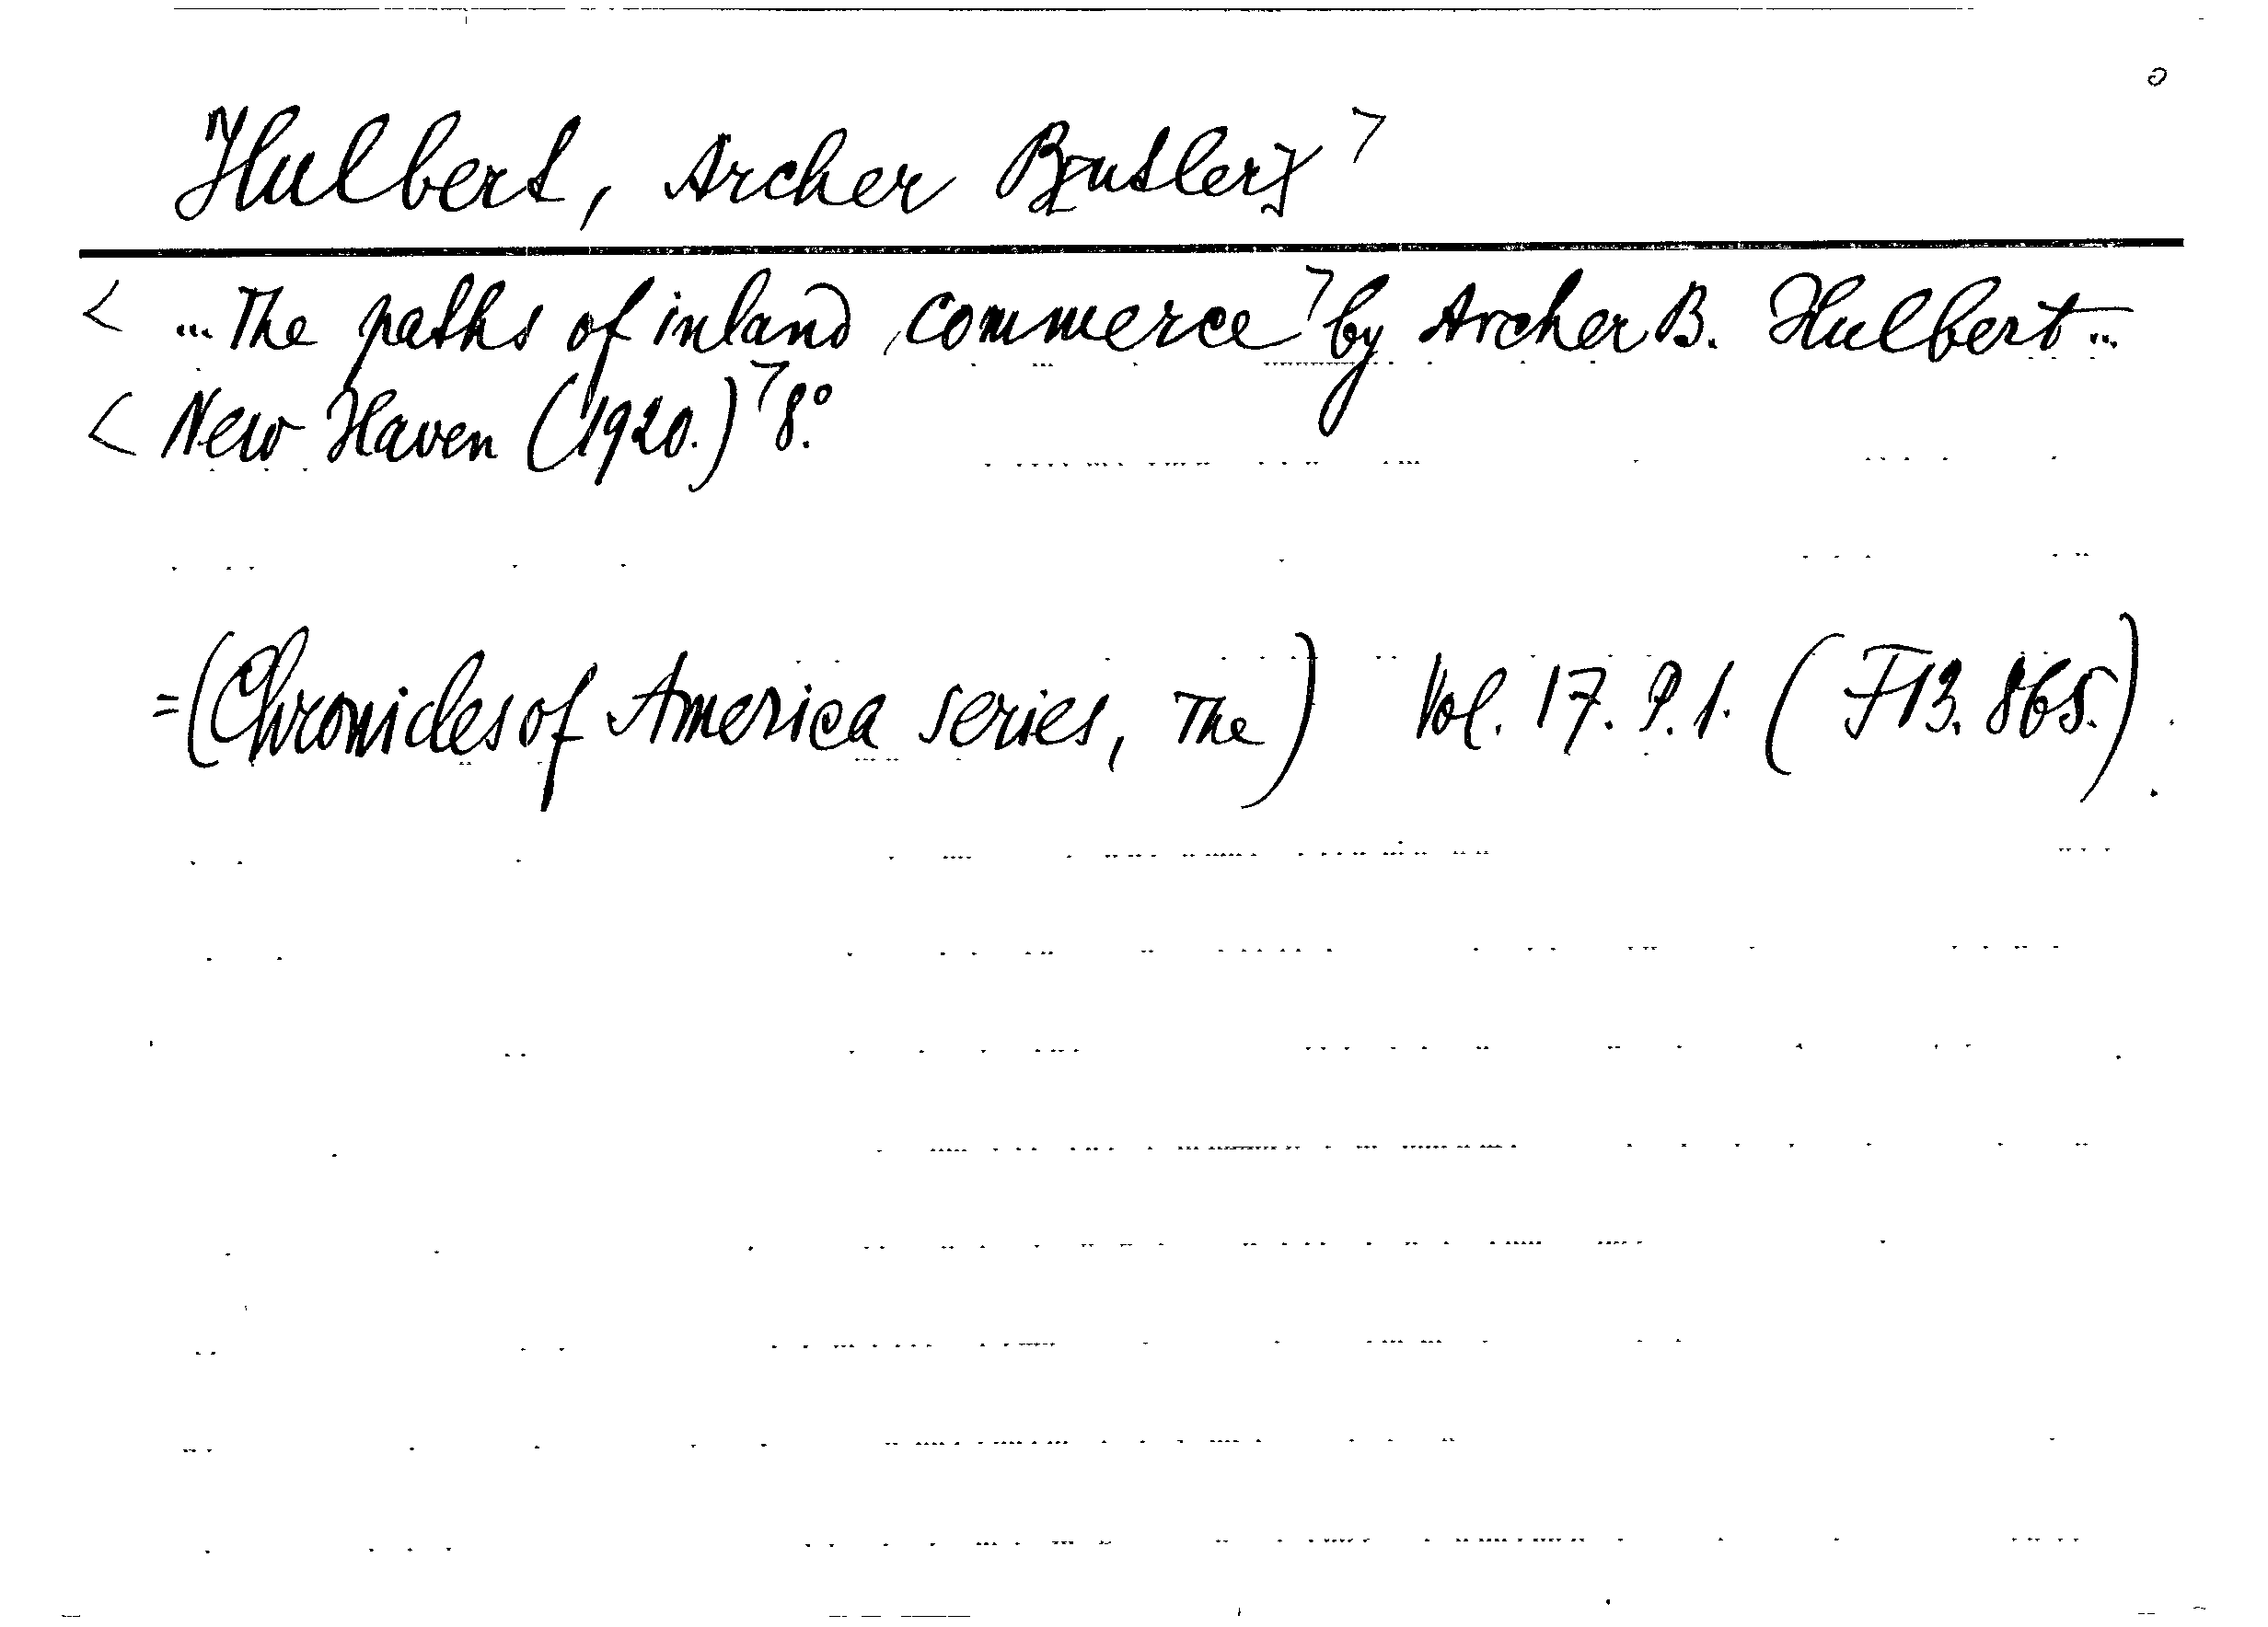 Hulbert, Archer B[utler] >
< ... The paths of inland commerce > by Archer B. Hulbert ...
< New Haven (1920.) > 8°.
= (Chronicles of America series, The) Vol. 17. P. 1. (F13. 865.).